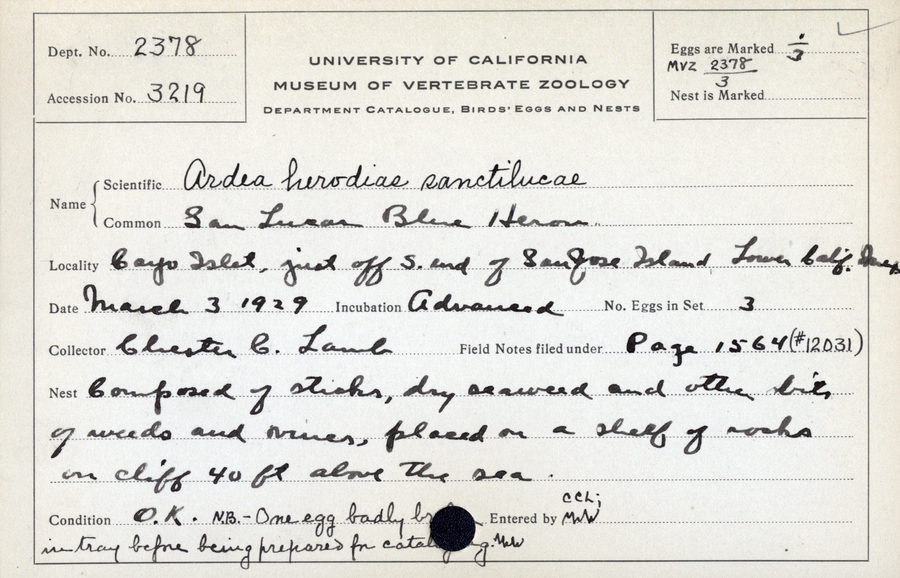 Dept. No. 2378
Accession No. 3219
UNIVERSITY OF CALIFORNIA
MUSEUM OF VERTEBRATE ZOOLOGY
DEPARTMENT CATALOGUE, BIRDS' EGGS AND NESTS
Eggs are Marked ./3
MVZ 2378/3
Nest is Marked
Name
Scientific Ardea herodias sanctilucae
Common San Lucas Blue Heron
Locality Cayo Islet, just off S. end of San Jose Island Lower Calif.
Date March 3 1929 Incubation Advanced No. Eggs in Set 3
Collector Chester C. Lamb Field Notes filed under Page 1564 (#12031)
Nest Composed of sticks, dry seaweed and other bits
of weeds and vines, placed on a shelf of rocks
on cliff 40 ft above the sea.
Condition O.K. N.B. - One egg badly Entered by CCL;
in tray before being prepared for